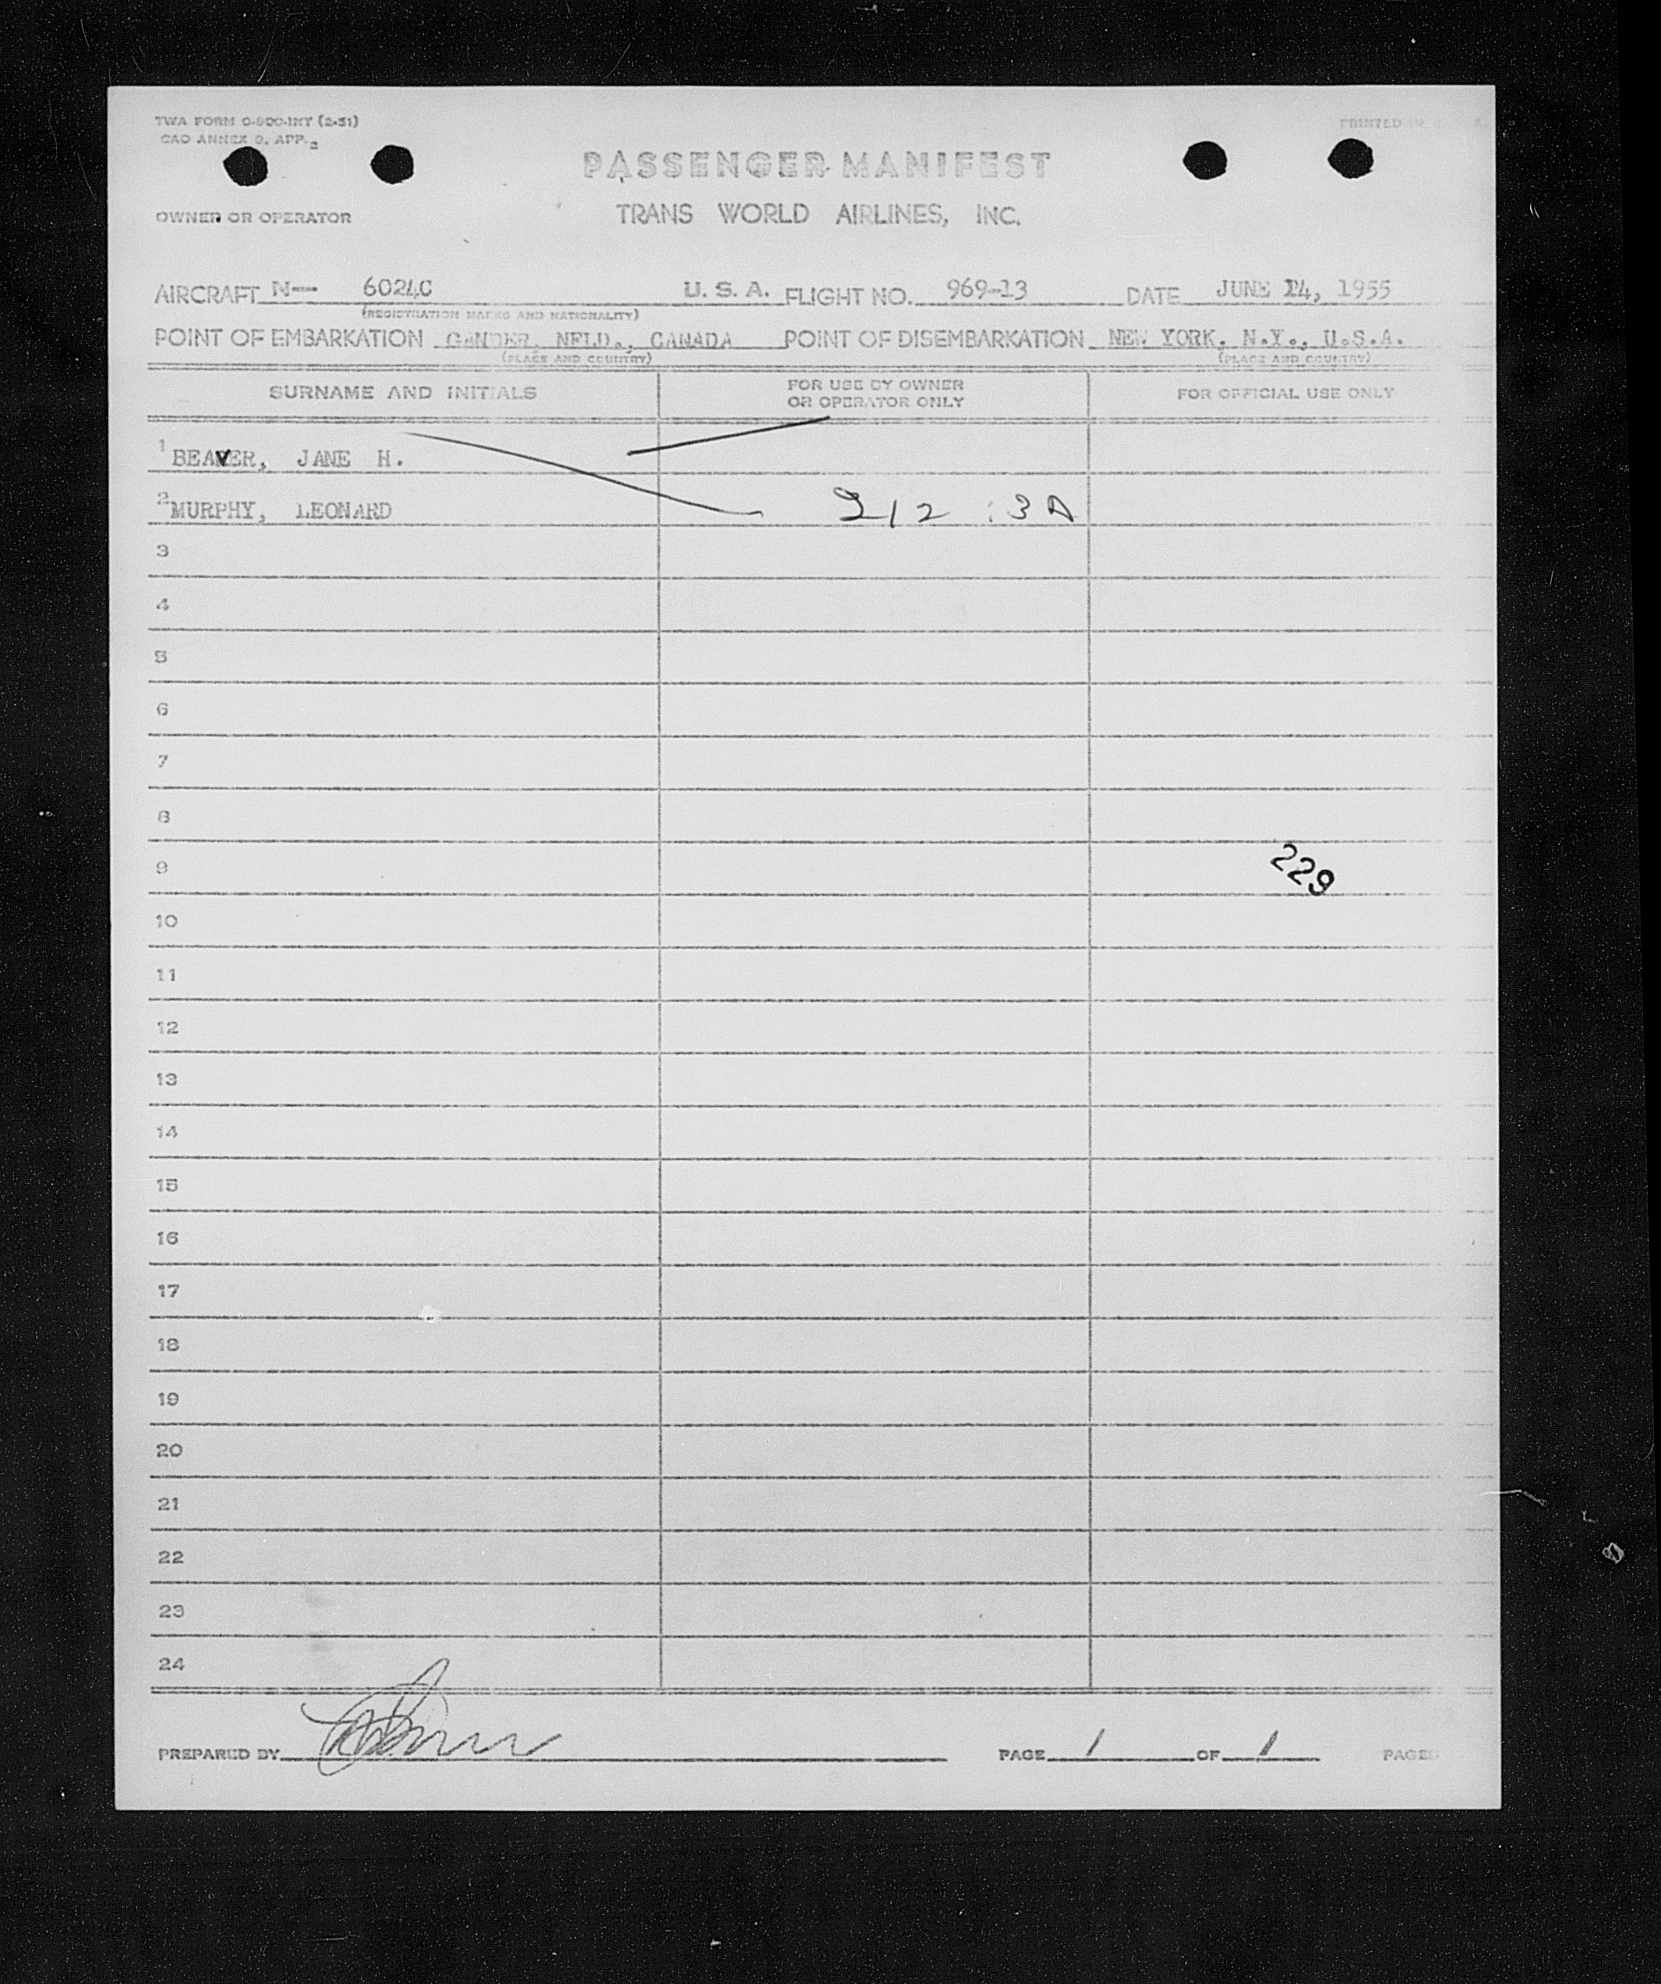 TWA FORM O-90C-INT (2-51)
CAO ANNEX 9, APP. 2
PRINTED IN
PASSENGER MANIFEST
OWNER OR OPERATOR TRANS WORLD AIRLINES, INC.
AIRCRAFT N-- 6024C U. S. A. FLIGHT NO. 969-13 DATE JUNE 14, 1955
(REGISTRATION MARKS AND NATIONALITY)
POINT OF EMBARKATION GANDER, NFLD., CANADA POINT OF DISEMBARKATION NEW YORK, N.Y., U.S.A.
(PLACE AND COUNTRY) (PLACE AND COUNTRY)
SURNAME AND INITIALS FOR USE BY OWNER OR OPERATOR ONLY FOR OFFICIAL USE ONLY
1 BEAVER, JANE H.
2 MURPHY, LEONARD 212 :3A
3
4
5
6
7
8
9 229
10
11
12
13
14
15
16
17
18
19
20
21
22
23
24
PREPARED BY PAGE 1 OF 1 PAGES